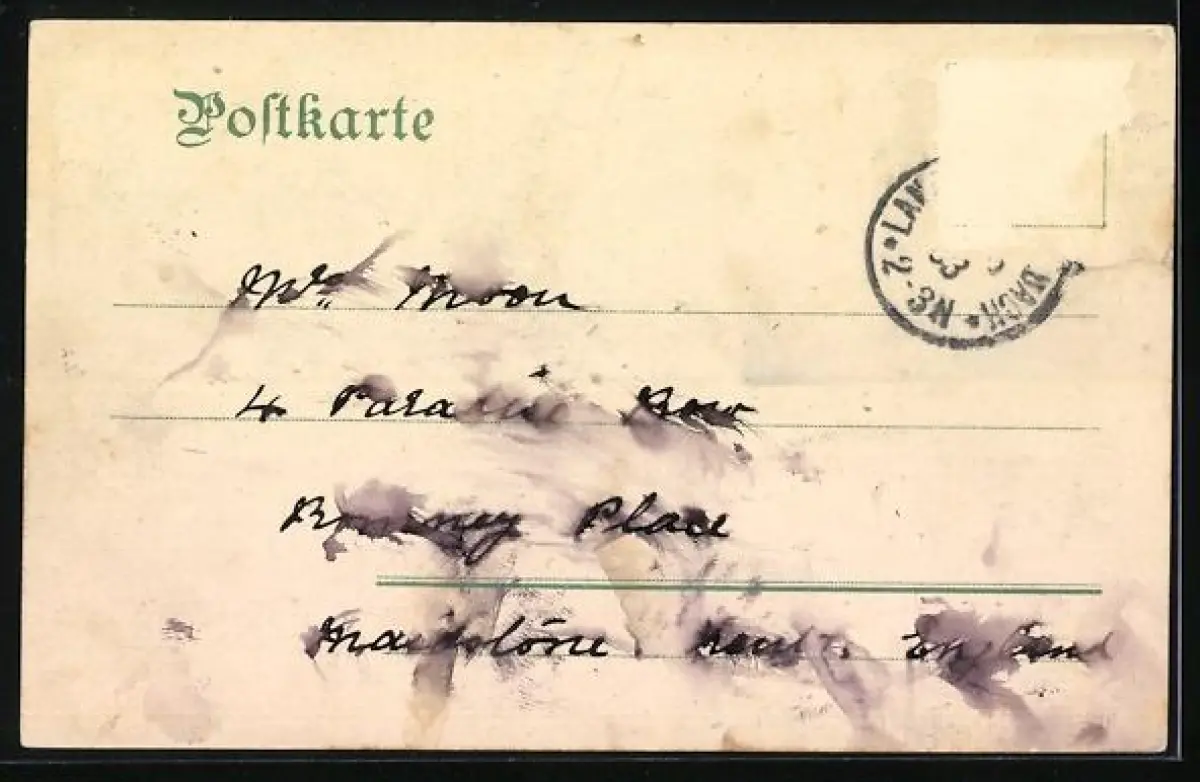 Postkarte
LAN
BACH * NS. 2. *
3
Mrs Moon
4 Paradise Row
Place
Maidstone. Kent. England